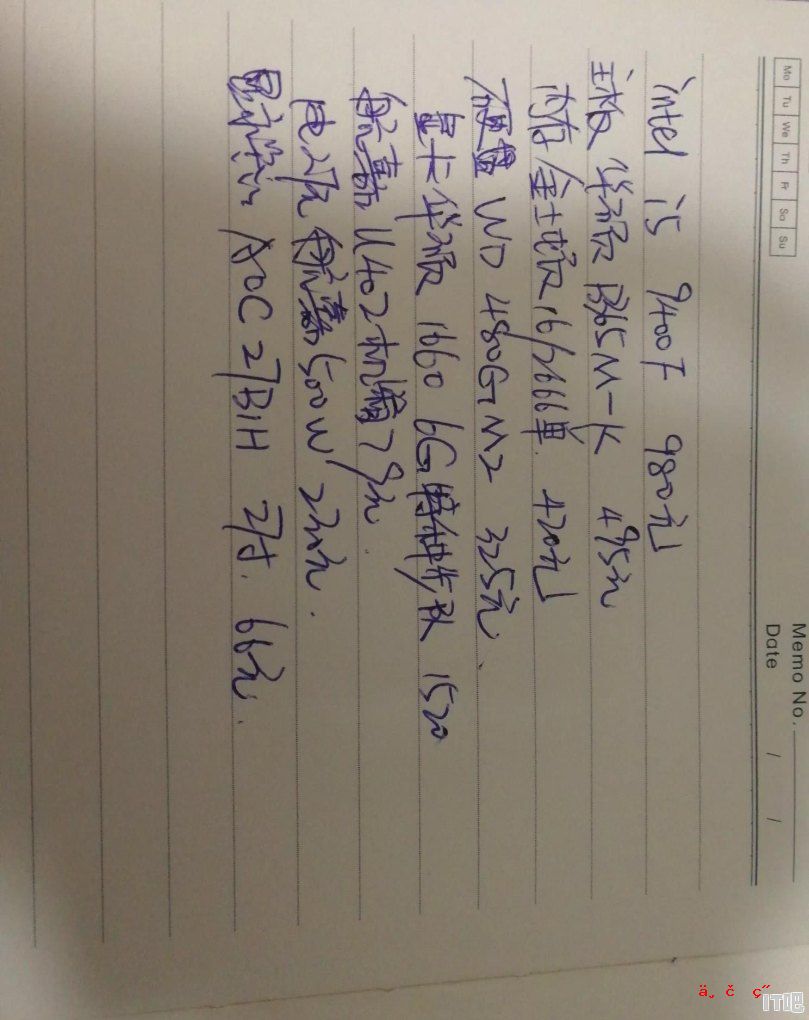 Memo No.
Mo Tu We Th Fr Sa Su
Date / /
intel i5 9400F 980元
主板 华硕 B365M-K 495元
内存 金士顿 16/2666单 420元
硬盘 WD 480G M2 325元.
显卡 华硕 1660 6G 特种部队 1520
航嘉 U402机箱 79元.
电源 航嘉 500W 230元.
显示器 AOC 27B1H 27寸. 66元.
ä¸ č ç˝
IT吧